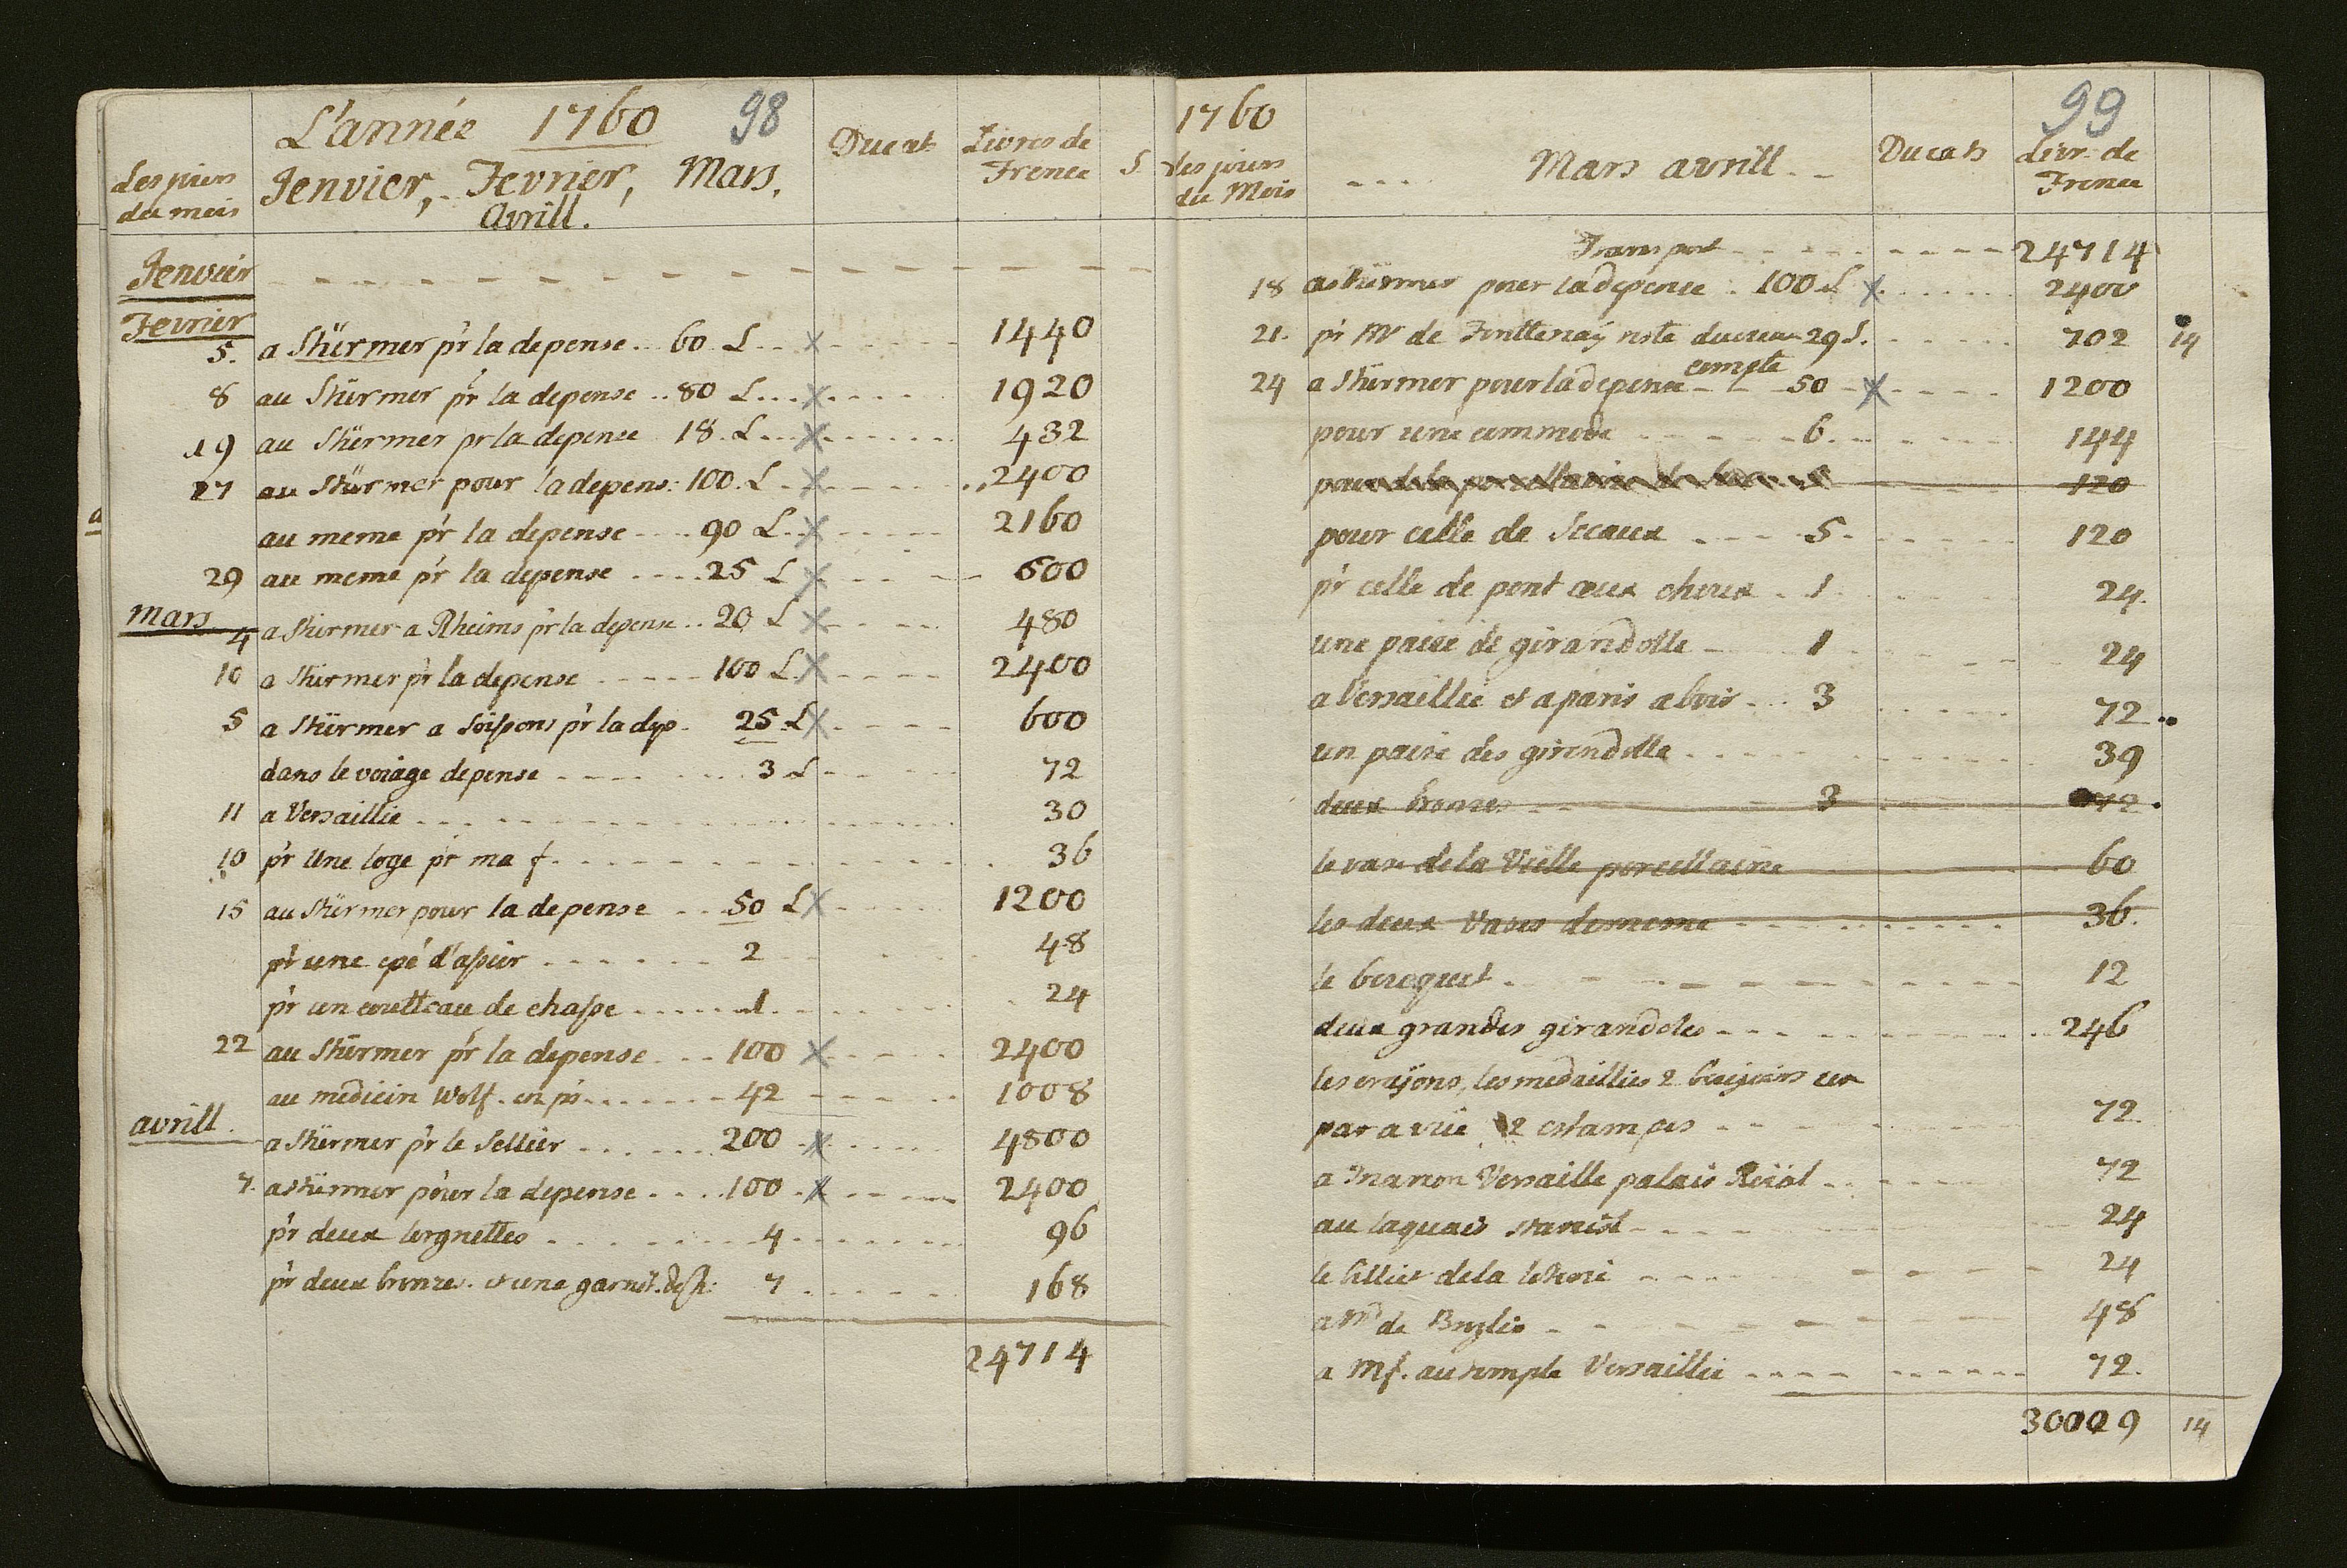 L'année 1760 98
Les jours du mois
Jenvier, Fevrier, Mars, Avrill.
Ducat
Livres de Frence
S
Jenvier
Fevrier
5. a Stürmer pr la depense 60 L x 1440
8 au Stürmer pr la depense 80 L x 1920
19 au Stürmer pr la depense 18 L x 432
27 au Stürmer pour la depens: 100 L x 2400
au meme pr la depense 90 L x 2160
29 au meme pr la depense 25 L x 600
Mars
4 a Stürmer a Rheims pr la depense 20 L x 480
10 a Stürmer pr la depense 100 L x 2400
5 a Stürmer a Soissons pr la dep. 25 L x 600
dans le voiage depense 3 L 72
11 a Versaillie 30
10 pr Une loge pr ma f. 36
15 au Stürmer pour la depense 50 L x 1200
pr une epé d'assier 2 48
pr un coutteau de chasse 1 24
22 au Stürmer pr la depense 100 x 2400
au medicin Wolf. en pr 42 1008
avrill.
a Stürmer pr le Sellier 200 x 4800
7. a Stürmer pour la depense 100 x 2400
pr deux lorgnettes 4 96
pr deux bronzes. et une garnit. 7 168
24714
1760 99
des jours du Mois
Mars avrill
Ducats
Livr. de Frence
Transport 24714
18 a Stürmer pour la depense 100 L x 2400
21. pr Mr de Fonttenaÿ note 29 S. 702 14
compte
24 a Stürmer pour la depense 50 x 1200
pour une commode 6. 144
120
pour celle de Sceaux 5 120
pr celle de pont aux choux 1 24.
une paire de girandolle 1 24
a Versaillie et a paris a boir 3 72
un paire des girendolle 39
deux bronzes 3 72
le vase de la Vielle porcellaine 60
les deux Vases de meme 36.
le boucquet 12
deux grandes girandoles 246
les craÿons, les medaillies 2 un
par a vüe 2 estampes 72.
a Versaille palais Roiäl 72
au laquais 24
le billiet de la 24
a Md de Broglio 48
a Mf. au temple Versaillie 72.
30029 14